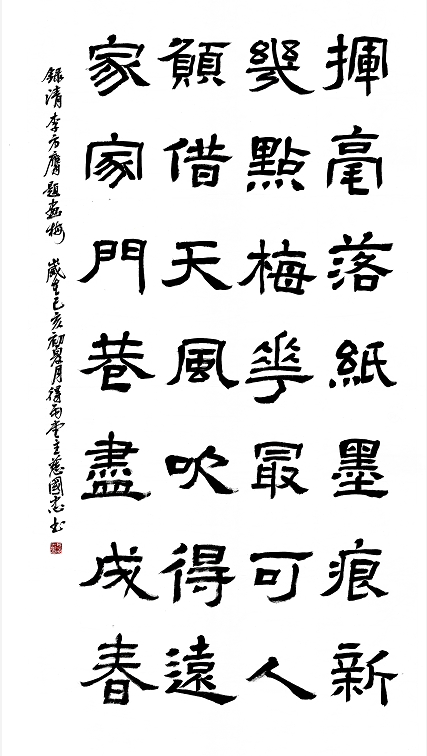 揮毫落紙墨痕新
幾點梅花最可人
願借天風吹得遠
家家門巷盡成春
錄清李方膺題畫梅 歲在己亥初暑月得雨堂主 國志書